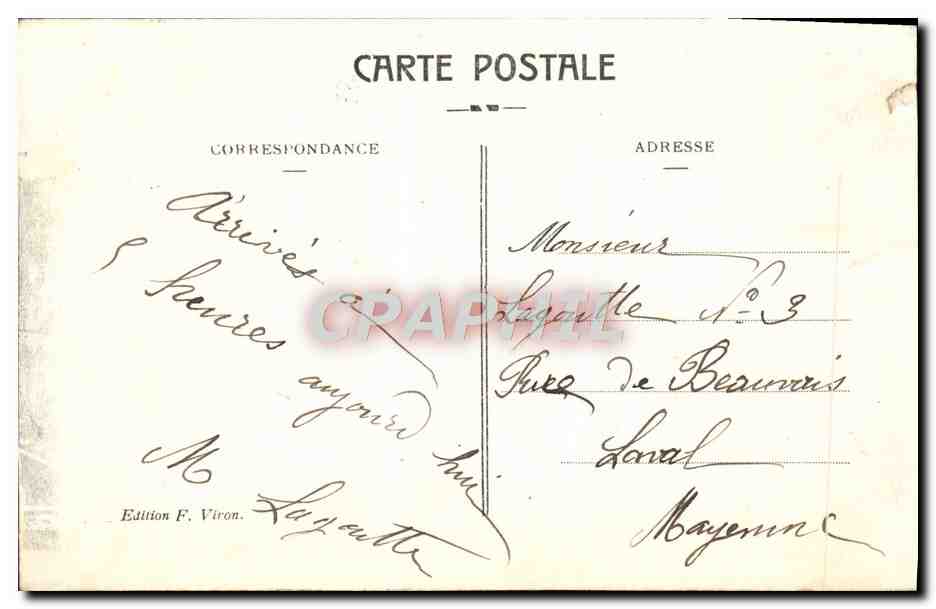 CARTE POSTALE
CORRESPONDANCE
Arrivés à
5 heures aujourd'hui
M Lagoutte
Edition F. Viron.
ADRESSE
Monsieur
Lagoutte No 3
Rue de Beauvais
Laval
Mayenne
CPAPHIL